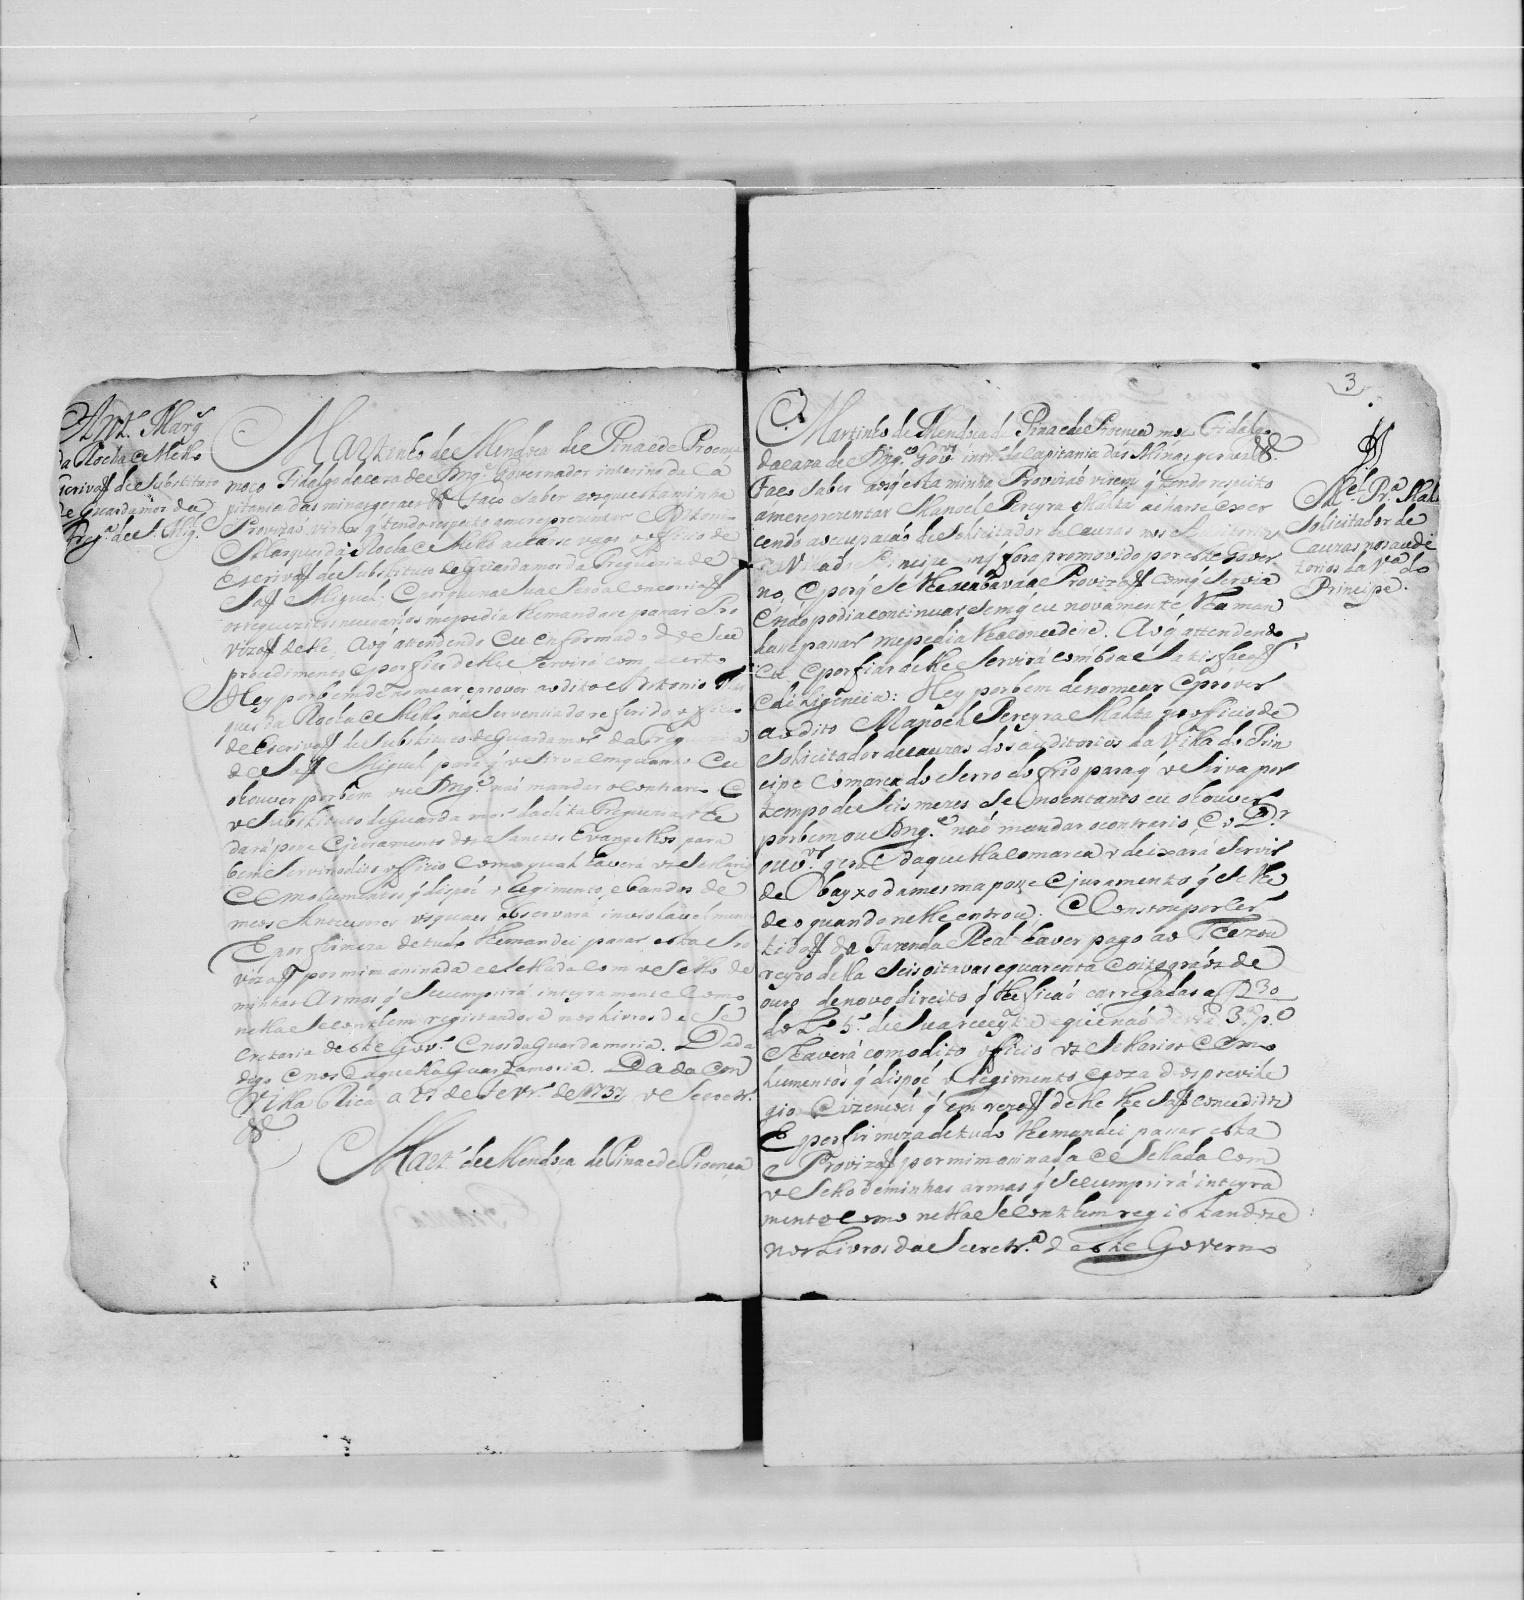 Ant.º Marq̃
da Rocha e Mello
Escrivaõ de Substituto
de Guardamor da
Freg.ª de S. Mig.
Martinho de Mendoça de Pina e de Proença
moço Fidalgo da caza de S. Mag.e Governador interino da Ca
pitania das minas geraes & Faço saber aos que esta minha
Provizaõ virem q̃ tendo respeito a me reprezentar Antonio
Marques da Rocha e Mello acharse vago o officio de
Escrivaõ de Substituto de Guardamor da Freguezia de
Saõ Miguel; e porque na sua pesoa concorriaõ
os requezitos necesarios me pedia lhe mandase pasar Pro
vizaõ delle. Ao q̃ attendendo eu e informado do seu
procedimento e por fiar delle servirá com acerto
Hey por bem de nomear e prover ao dito Antonio Mar
ques da Rocha e Mello, na serventia do referido officio
de Escrivaõ de Substituto de Guardamor da Freguezia
de Saõ Miguel para q̃ o sirva emquanto eu
o houver por bem ou S. Mag.e naõ mandar o contrario e
o Substituto de Guarda mor da dita Freguezia lhe
dará pose e juramento dos Santos Evangelhos para
bem servir o dito officio com o qual haverá os Sellarios
e emolumentos q̃ dispoẽ o Regimento, e bandos de
meos Antecesores os quaes observará inviolavelmente
E por firmeza de tudo lhe mandei pasar esta Pro
vizaõ por mim asinada e sellada com o Sello de
minhas Armas q̃ se cumprirá inteyramente como
nella se contem registandose nos livros da Se
cretaria deste Gov.º e nos da Guardamoria. Dada
digo e nos daquella Guardamoria. Dada em
Villa Rica a 27 de Fevr.º de 1737 o Secretr.º
&
Mart.º de Mendoça de Pina e de Proença
3
Martinho de Mendoça de Pina e de Proença moço Fidalgo
da caza de S. Mag.e Gov.or intr.º da Capitania das Minas geraes &
Faço saber aos q̃ esta minha Provizaõ virem q̃ tendo respeito
a me reprezentar Manoel Pereyra Malta acharse exer
cendo a ocupaçaõ de Solicitador de cauzas nos Auditorios
da Villa do Principe em q̃ fora promovido por este Gover
no, e porq̃ se lhe acabava a Provizaõ com q̃ servia
e naõ podia continuar sem q̃ eu novamente lha man
dase pasar me pedia lha concedese. Ao q̃ attendendo
eu e por fiar delle servirá com boa satisfaçaõ
e diligencia: Hey por bem de nomear e prover
ao dito Manoel Pereyra Malta no officio de
Solicitador de cauzas dos auditorios da Villa do Prin
cipe Comarca do Serro do frio para q̃ o sirva por
tempo de seis mezes se no entanto eu o houver
por bem ou S. Mag.e naõ mandar o contrario, e o D.r
ouv.or geral daquella comarca o deixará servir
de obayxo da mesma pose e juramento q̃ se lhe
deo quando nelle entrou. E constou por Cer
tidaõ da Fazenda Real haver pago ao Thezou
reyro della seis oitavas e quarenta e oito graõs de
ouro de novo direito q̃ lhe ficaõ carregadas a f 230
do L.º 5.º de sua receyta
E haverá com o dito officio os Sellarios e emo
lumentos q̃ dispoẽ o Regimento e goza dos previle
gios e izençoẽs q̃ em rezaõ delle lhe saõ concedidos
E por firmeza de tudo lhe mandei pasar esta
Provizaõ por mim asinada e Sellada com
o Sello de minhas armas q̃ se cumprirá inteyra
mente como nella se contem registandose
nos Livros da Secretr.ª deste Governo
M.el Pr.ª Mal
Solicitador de
Cauzas nos audi
torios da V.ª do
Principe.